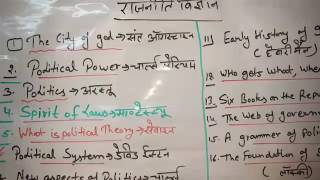 राजनीति विज्ञान
1. The City of god → संत ऑगस्टाइन
2. Political Power → चार्ल्स मेरियम
3. Politics → अरस्तू
4. Spirit of Laws → मान्टेस्क्यू
5. What is political Theory → सेबाइन
Political System → डेविड ईस्टन
New aspects of Politics → चार्ल्स
11) Early History of
12. Who gets What, when
13. Six Books on the Rep
14. The Web of governm
15. A grammer of Polit
16. The Foundation of S